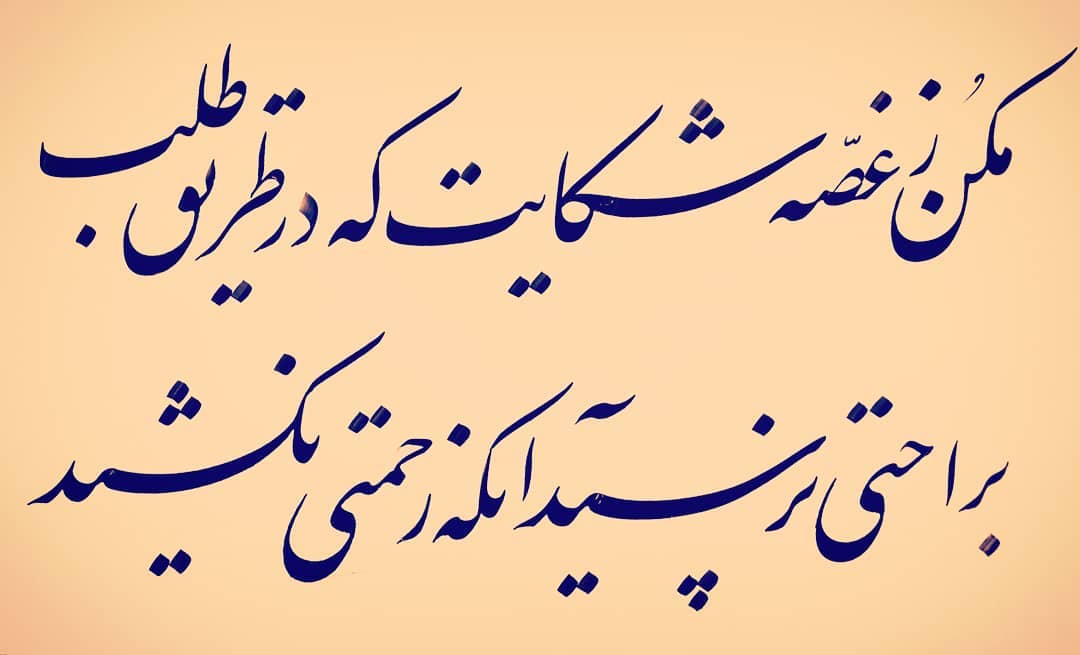 مکُن ز غصّه شکایت که در طریق طلب
براحتی نرسید آنکه زحمتی نکشید